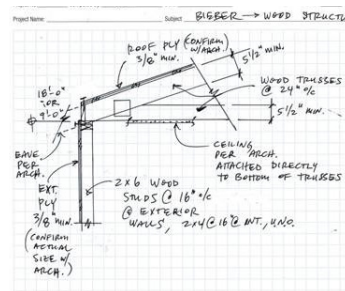 Project Name:
Subject BIEBER → WOOD STRUCTU
ROOF PLY (CONFIRM
3/8" MIN. W/ARCH.)
5 1/2" MIN.
WOOD TRUSSES
@ 24" o/c
18'-0"
OR
9'-0"
5 1/2" MIN.
EAVE
PER
ARCH.
CEILING
PER ARCH.
ATACHED DIRECTLY
TO BOTTOM OF TRUSSES
EXT.
PLY
3/8" MIN.
(CONFIRM
ACTUAL
SIZE W/
ARCH.)
2x6 WOOD
STUDS @ 16" o/c
@ EXTERIOR
WALLS, 2x4@16"@ INT., U.N.O.